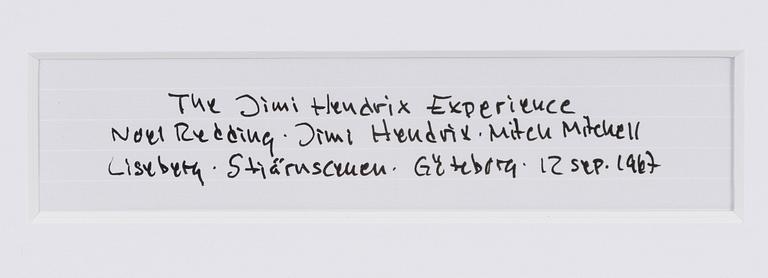 The Jimi Hendrix Experience
Noel Redding · Jimi Hendrix · Mitch Mitchell
Liseberg · Stjärnscenen · Göteborg · 12 sep. 1967